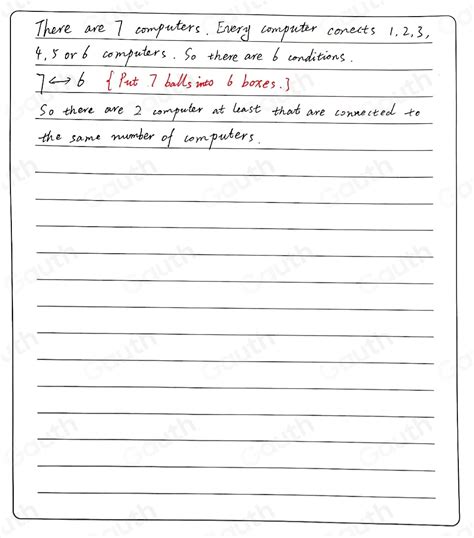 There are 7 computers. Every computer conects 1, 2, 3,
4, 5 or 6 computers. So there are 6 conditions.
7 ↔ 6 {Put 7 balls into 6 boxes.}
So there are 2 computer at least that are connected to
the same number of computers.
Gauth